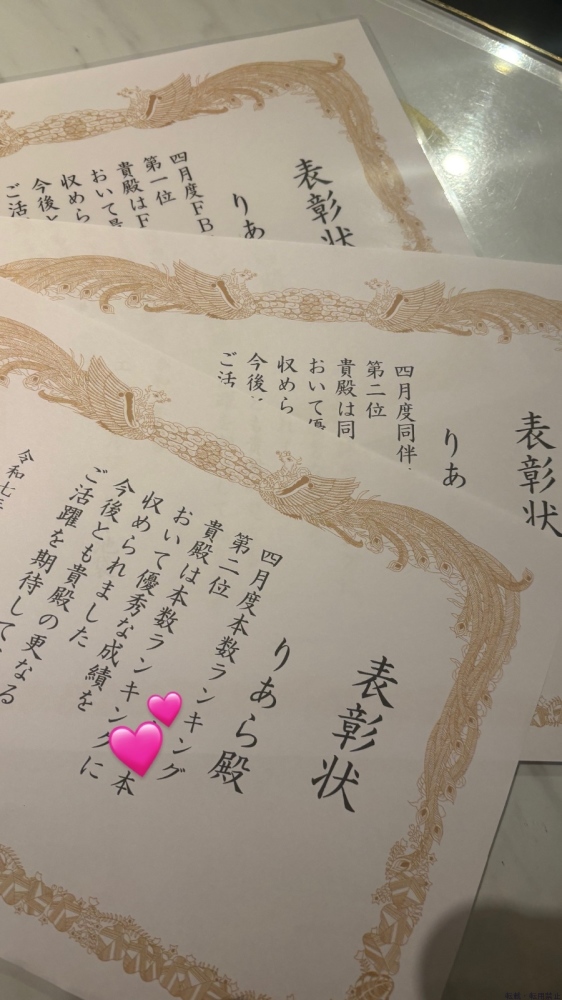 表彰状
りあ
四月度FB
第一位
貴殿はF
おいて
収めら
今後と
ご活
表彰状
りあ
四月度同伴
第二位
貴殿は同
おいて優
収めら
今後
ご活
表彰状
りあら殿
四月度本数ランキング
第二位
貴殿は本数ランキング
おいて優秀な成績を
収められました
今後とも貴殿の更なる
ご活躍を期待して
令和七年